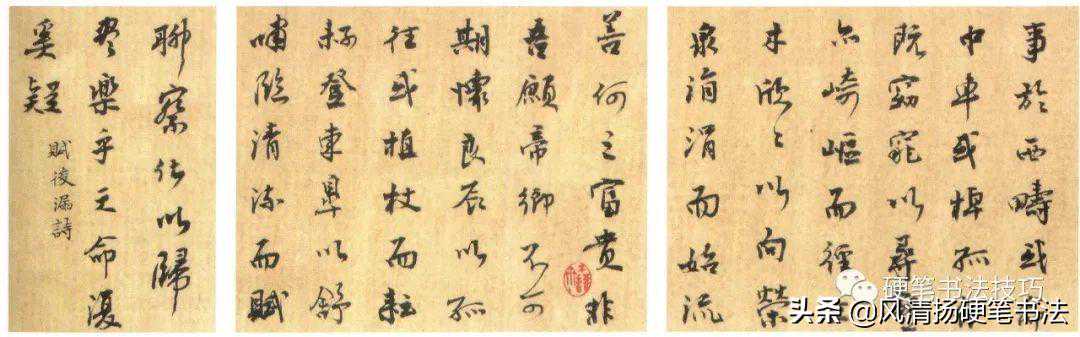 事於西疇或
巾車或棹孤
既窈窕以尋
亦崎嶇而經
木欣〻以向榮
泉涓涓而始流
善何之富貴非
吾願帝鄉不可
期懷良辰以孤
往或植杖而耘
耔登東皋以舒
嘯臨清流而賦
聊乘化以歸
盡樂乎天命復
奚疑
賦後漏詩
硬笔书法技巧
头条 @风清扬硬笔书法